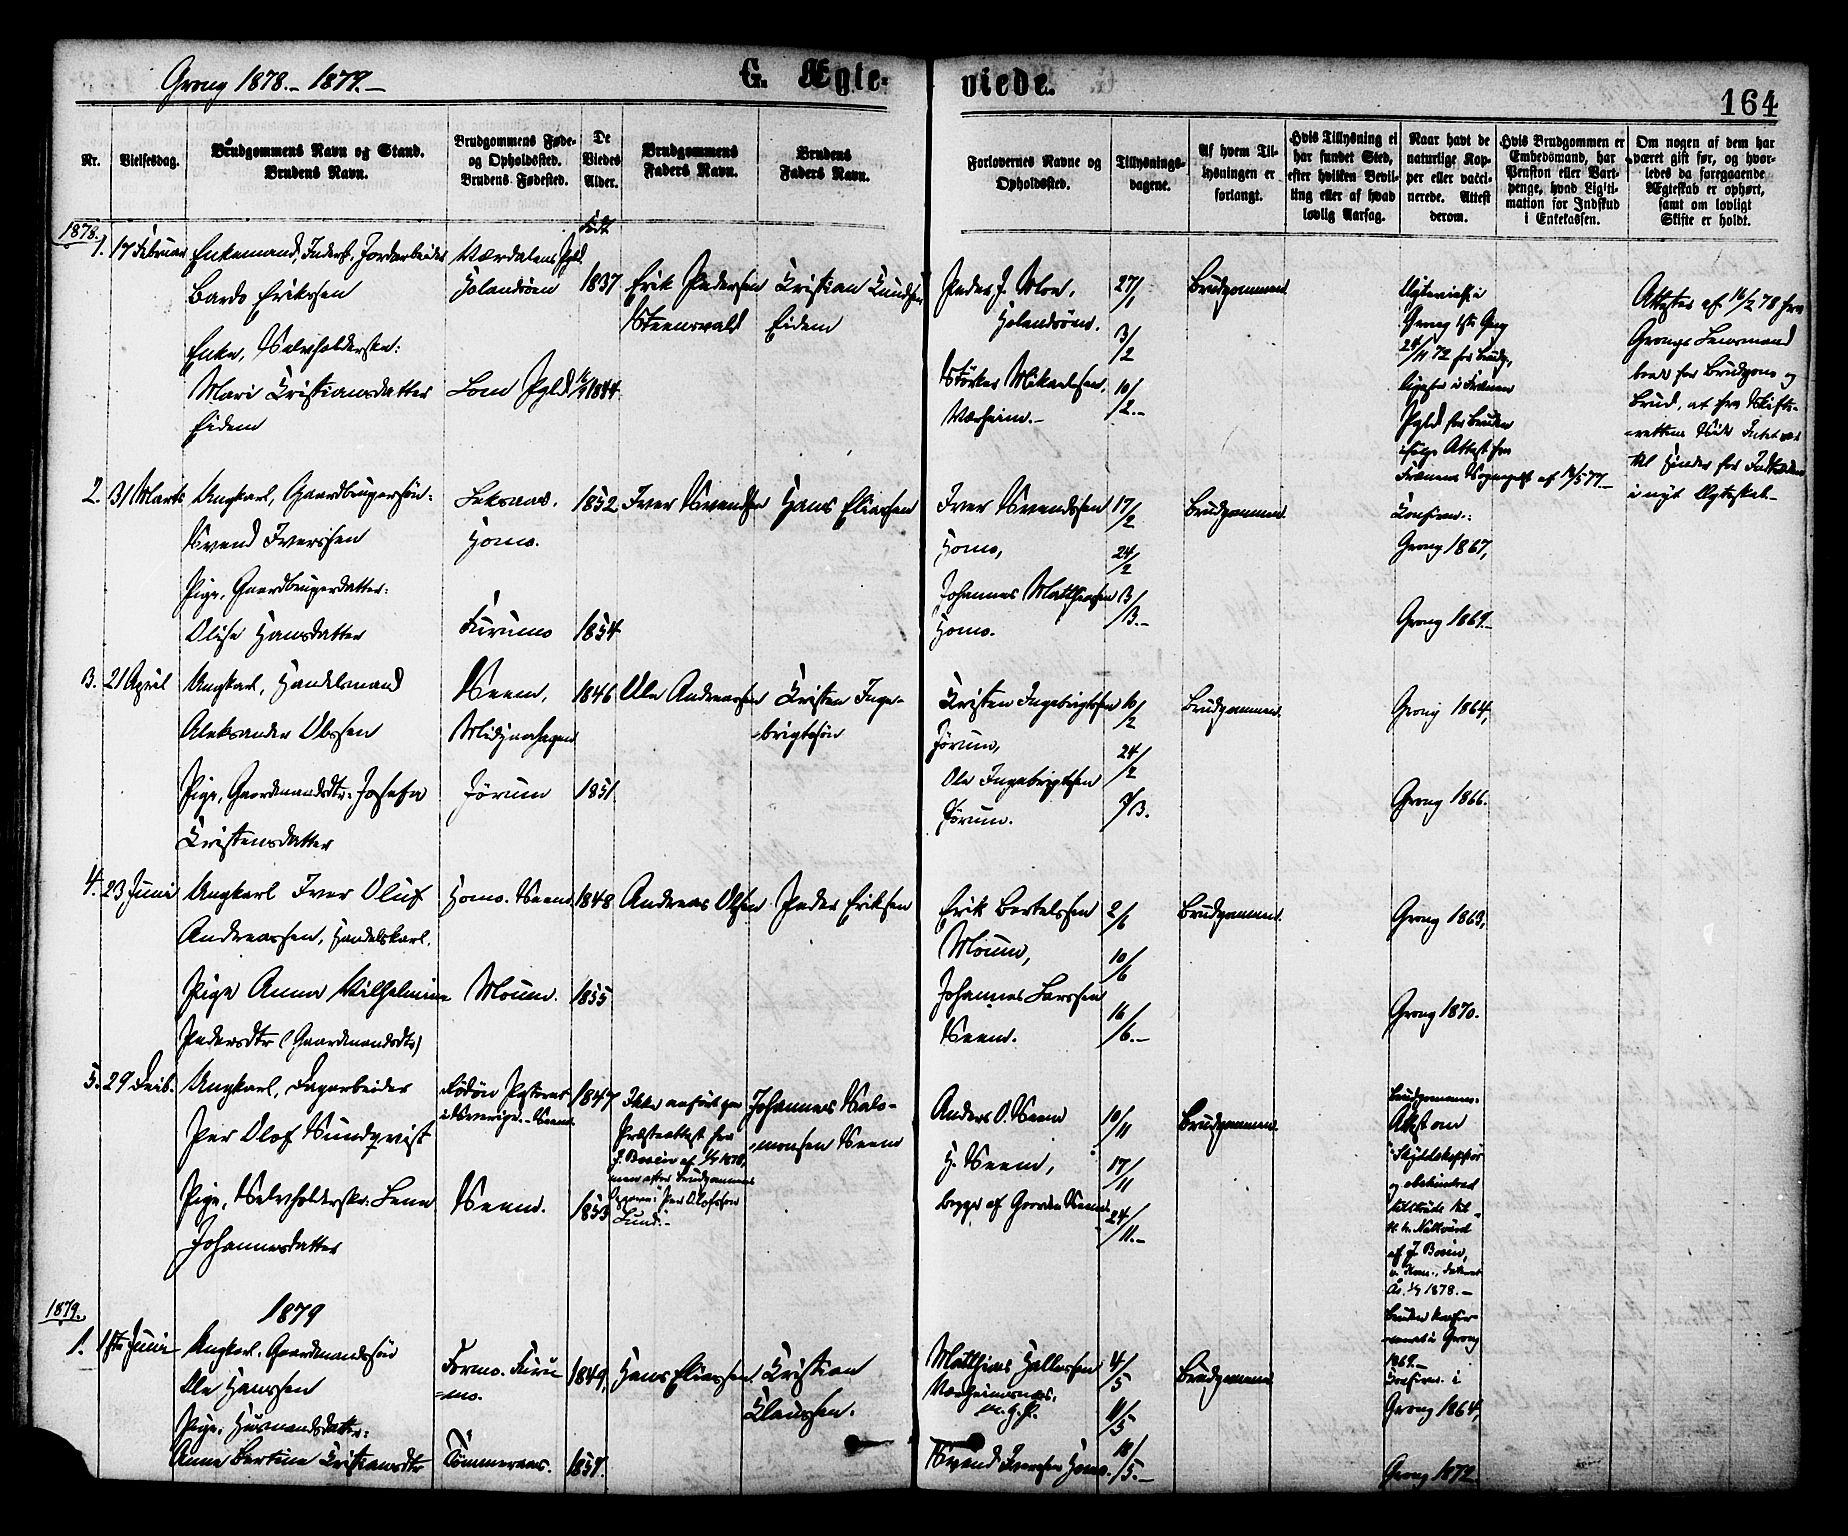 Grong 1878.- 1879.-
G. Ægte-
viede.
164
Nr.
Vielsesdag.
Brudgommens Navn og Stand.
Brudens Navn.
Brudgommens Føde-
og Opholdssted.
Brudens Fødested.
De
Viedes
Alder.
Brudgommens
Faders Navn.
Brudens
Faders Navn.
Forlovernes Navne og
Opholdssted.
Tillysnings-
dagene.
Af hvem Til-
lysningen er
forlangt.
Hvis Tillysning ei
har fundet Sted,
efter hvilken Bevil-
ling eller af hvad
lovlig Aarsag.
Naar havt de
naturlige Kop-
per eller vacci-
nerede. Attest
derom.
Hvis Brudgommen er
Embedsmand, har
Pension eller Vart-
penge, hvad Ligiti-
mation for Indskud
i Enkekassen.
Om nogen af dem har
været gift før, og hvor-
ledes da foregaaende
Ægteskab er ophørt,
samt om lovligt
Skifte er holdt.
1878.
1. 17 Februar
Enkemand, Inderst, Jordarbeider
Bardo Eriksen
Enke, Selvholderske:
Mari Cristiansdatter
Eidem
Værdalens Pgld
Holandsøen
Lom Pgld
Født
1837
1844
Erik Pedersen
Steensvald
Cristian Knudsen
Eidem
Peder J. Moe,
Holandsøen.
Størker Mikaelsen,
Værheim.-
27/1
3/2
10/2.-
Brudgommen
Ægteviet i
Grong 1ste Gang
24/11 72 for Brudg,
Pgld for Bruden
ifølge Attest fra
Attester af 16/2 78 fra
Grongs Lensmand
baade for Brudgom og
Brud, at fra Skifte-
rettens Side Intet var
til Hinder for Indtrædelse
i nyt Ægteskab.-
2. 31 Marts
Ungkarl, Gaardbrugersøn:
Svend Iverssen
Pige, Gaardbrugerdatter:
Olise Hansdatter
Leksaas.
Homo.
Furumo
1852
1854
Iver Svendsen
Hans Eliassen
Iver Svendssen
Homo,
Johannes Matthiassen
Homo.
17/2
24/2
3/3.-
Brudgommen
Confirm.:
Grong 1867,
Grong 1869.-
3. 21 April
Ungkarl, Handelsmand
Aleksander Olssen
Pige, Gaardmandsdtr: Josefa
Cristensdatter
Seem,
Mediaahagen
Jørum
1846
1851
Ole Andreassen
Cristen Inge-
-brigtsøn
Cristen Ingebrigtsen
Jørum,
Ole Ingebrigtsen
Jørum.
10/2
24/2
3/3.
Brudgommen
Grong 1864,
Grong 1866.
4. 23 Juni
Ungkarl Iver Oluf
Andreassen, Handelskarl.
Pige Anna Vilhelmine
Pedersdtr (Gaardmandsdtr)
Homo. Seem.
Moum.
1848
1855
Andreas Olsen
Peder Eriksen
Erik Bertelssen
Moum,
Johannes Larssen
Seem.
2/6
10/6
16/6.-
Brudgommen
Grong 1863,
Grong 1870.
5. 29
Ungkarl, Fagarbeider
Per Olof Sundqvist
Pige, Selvholderske: Lena
Johannesdatter
Rödön Pastorat
i Sverige.- Seem.
Seem.
1847
1853
Ikke anført paa
Præsteattest fra
J. Boein af 1/7 1878,
men efter Brudgommens
Opgave: Per Olofsson
Lund.-
Johannes Salo-
-monsen Seem
Anders O. Seem
H. Seem,
begge af Gaarden Seem
10/11
17/11
24/11.-
Brudgommen
Brudgommens:
Attest om
Skyddskoppor
og obehindrad
tillträde till
H. h. Nattvard
af J. Boein,
1/7 1878.-
Bruden konfir-
-meret i Grong
1869.-
1879.
1879
1. 1ste Juni
Ungkarl, Gaardmandssøn
Ole Hanssen
Pige, Husmandsdatter:
Anne Bertine Cristiansdtr
Formo. Furu-
=mo.
Tømmeraas.
1849,
1857.
Hans Eliassen
Cristian
Claussen.
Matthias Hallessen
Værheimsnæs,
Svend Iverssen Homo.
4/5
11/5
18/5.-
Brudgommen
Confirm. i
Grong 1864,
Grong 1872